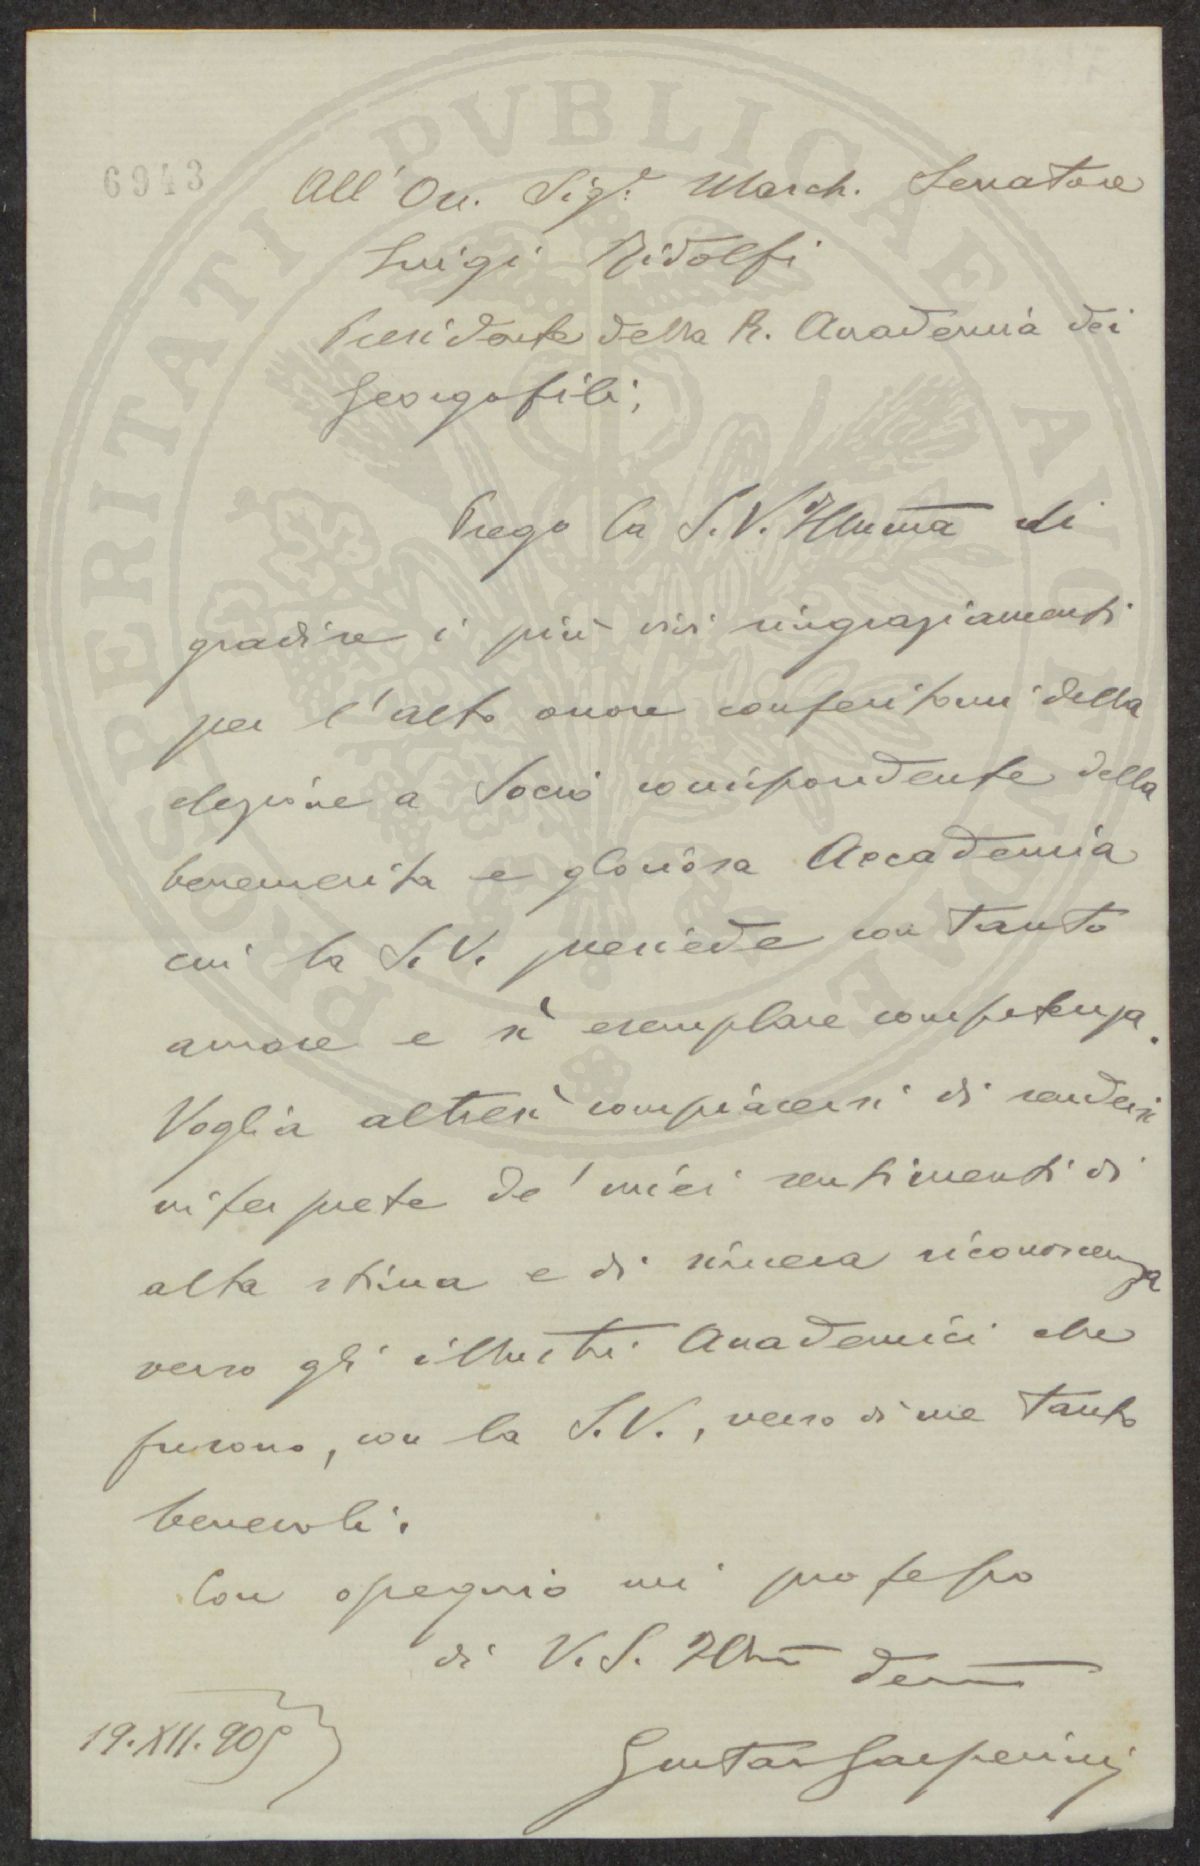 PROSPERITATI PVBLICAE AVGENDAE
6943
All' On. Sig.r March. Senatore
Luigi Ridolfi
Presidente della R. Accademia dei
Georgofili;
Prego la S.V. Illuma di
gradire i più vivi ringraziamenti
per l'alto onore conferitomi della
elezione a Socio corrispondente della
benemerita e gloriosa Accademia
cui la S.V. presiede con tanto
amore e sì esemplare competenza.
Voglia altresì compiacersi di rendersi
interprete de' miei sentimenti di
alta stima e di sincera riconoscenza
verso gli illustri Accademici che
furono, con la S.V., verso di me tanto
benevoli.
Con osequio mi professo
di V.S. Illma devmo
19.XII.905
Gustavo Gasperini